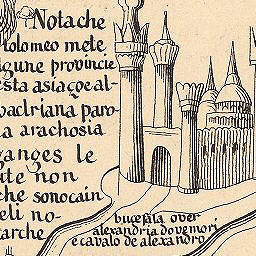 Nota che
tolomeo mete
lgune provincie
esta asia çoe al-
vadriana paro-
ia arachosia
ganges le
ute non
che sono cain
eli no-
tarche
bucefala over
alexandria do ve mori
e cavalo de alexandro